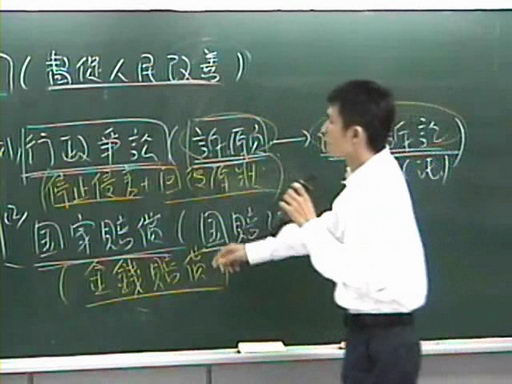 (督促人民改善)
(1)行政爭訟(訴願→訴訟)
(停止侵害+回復原狀)
(2)國家賠償(国賠
(金錢賠償)